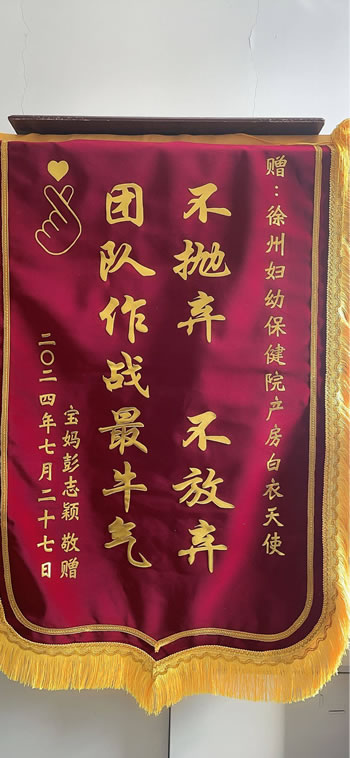 赠：徐州妇幼保健院产房白衣天使
不抛弃 不放弃
团队作战最牛气
宝妈彭志颖 敬赠
二〇二四年七月二十七日